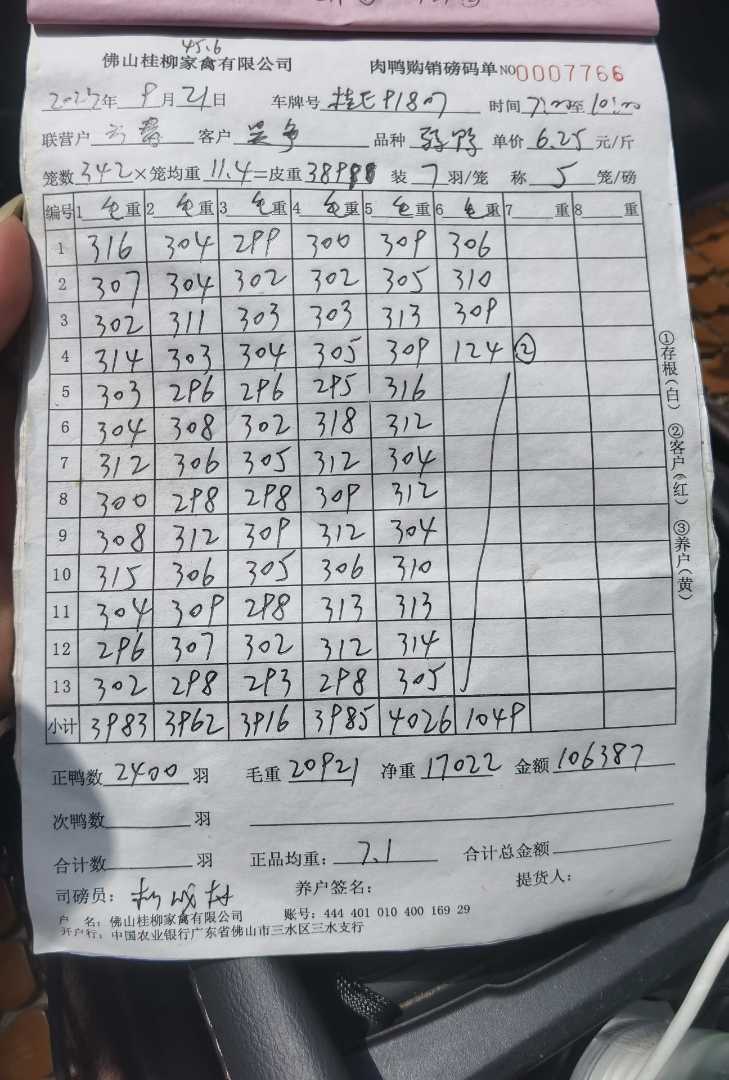 45.6
佛山桂柳家禽有限公司 肉鸭购销磅码单 NO0007766
年 9月21日 车牌号 时间 至
联营户 客户 品种 单价 6.25 元/斤
笼数 342 ×笼均重 11.4 =皮重 装 7 羽/笼 称 5 笼/磅
编号 1 毛重 2 毛重 3 毛重 4 毛重 5 毛重 6 毛重 7 重 8 重
1 316 304 299 300 309 306
2 307 304 302 302 305 310
3 302 311 303 303 313 309
4 314 303 304 305 309 124 ②
5 303 296 296 295 316
6 304 308 302 318 312
7 312 306 305 312 304
8 300 298 298 309 312
9 308 312 309 312 304
10 315 306 305 306 310
11 304 309 298 313 313
12 296 307 302 312 314
13 302 298 293 298 305
小计 3983 3962 3916 3985 4026 1049
①存根(白) ②客户(红) ③养户(黄)
正鸭数 2400 羽 毛重 20921 净重 17022 金额 106387
次鸭数 羽
合计数 羽 正品均重: 7.1 合计总金额
司磅员: 养户签名: 提货人:
户 名: 佛山桂柳家禽有限公司 账号: 444 401 010 400 169 29
开户行: 中国农业银行广东省佛山市三水区三水支行